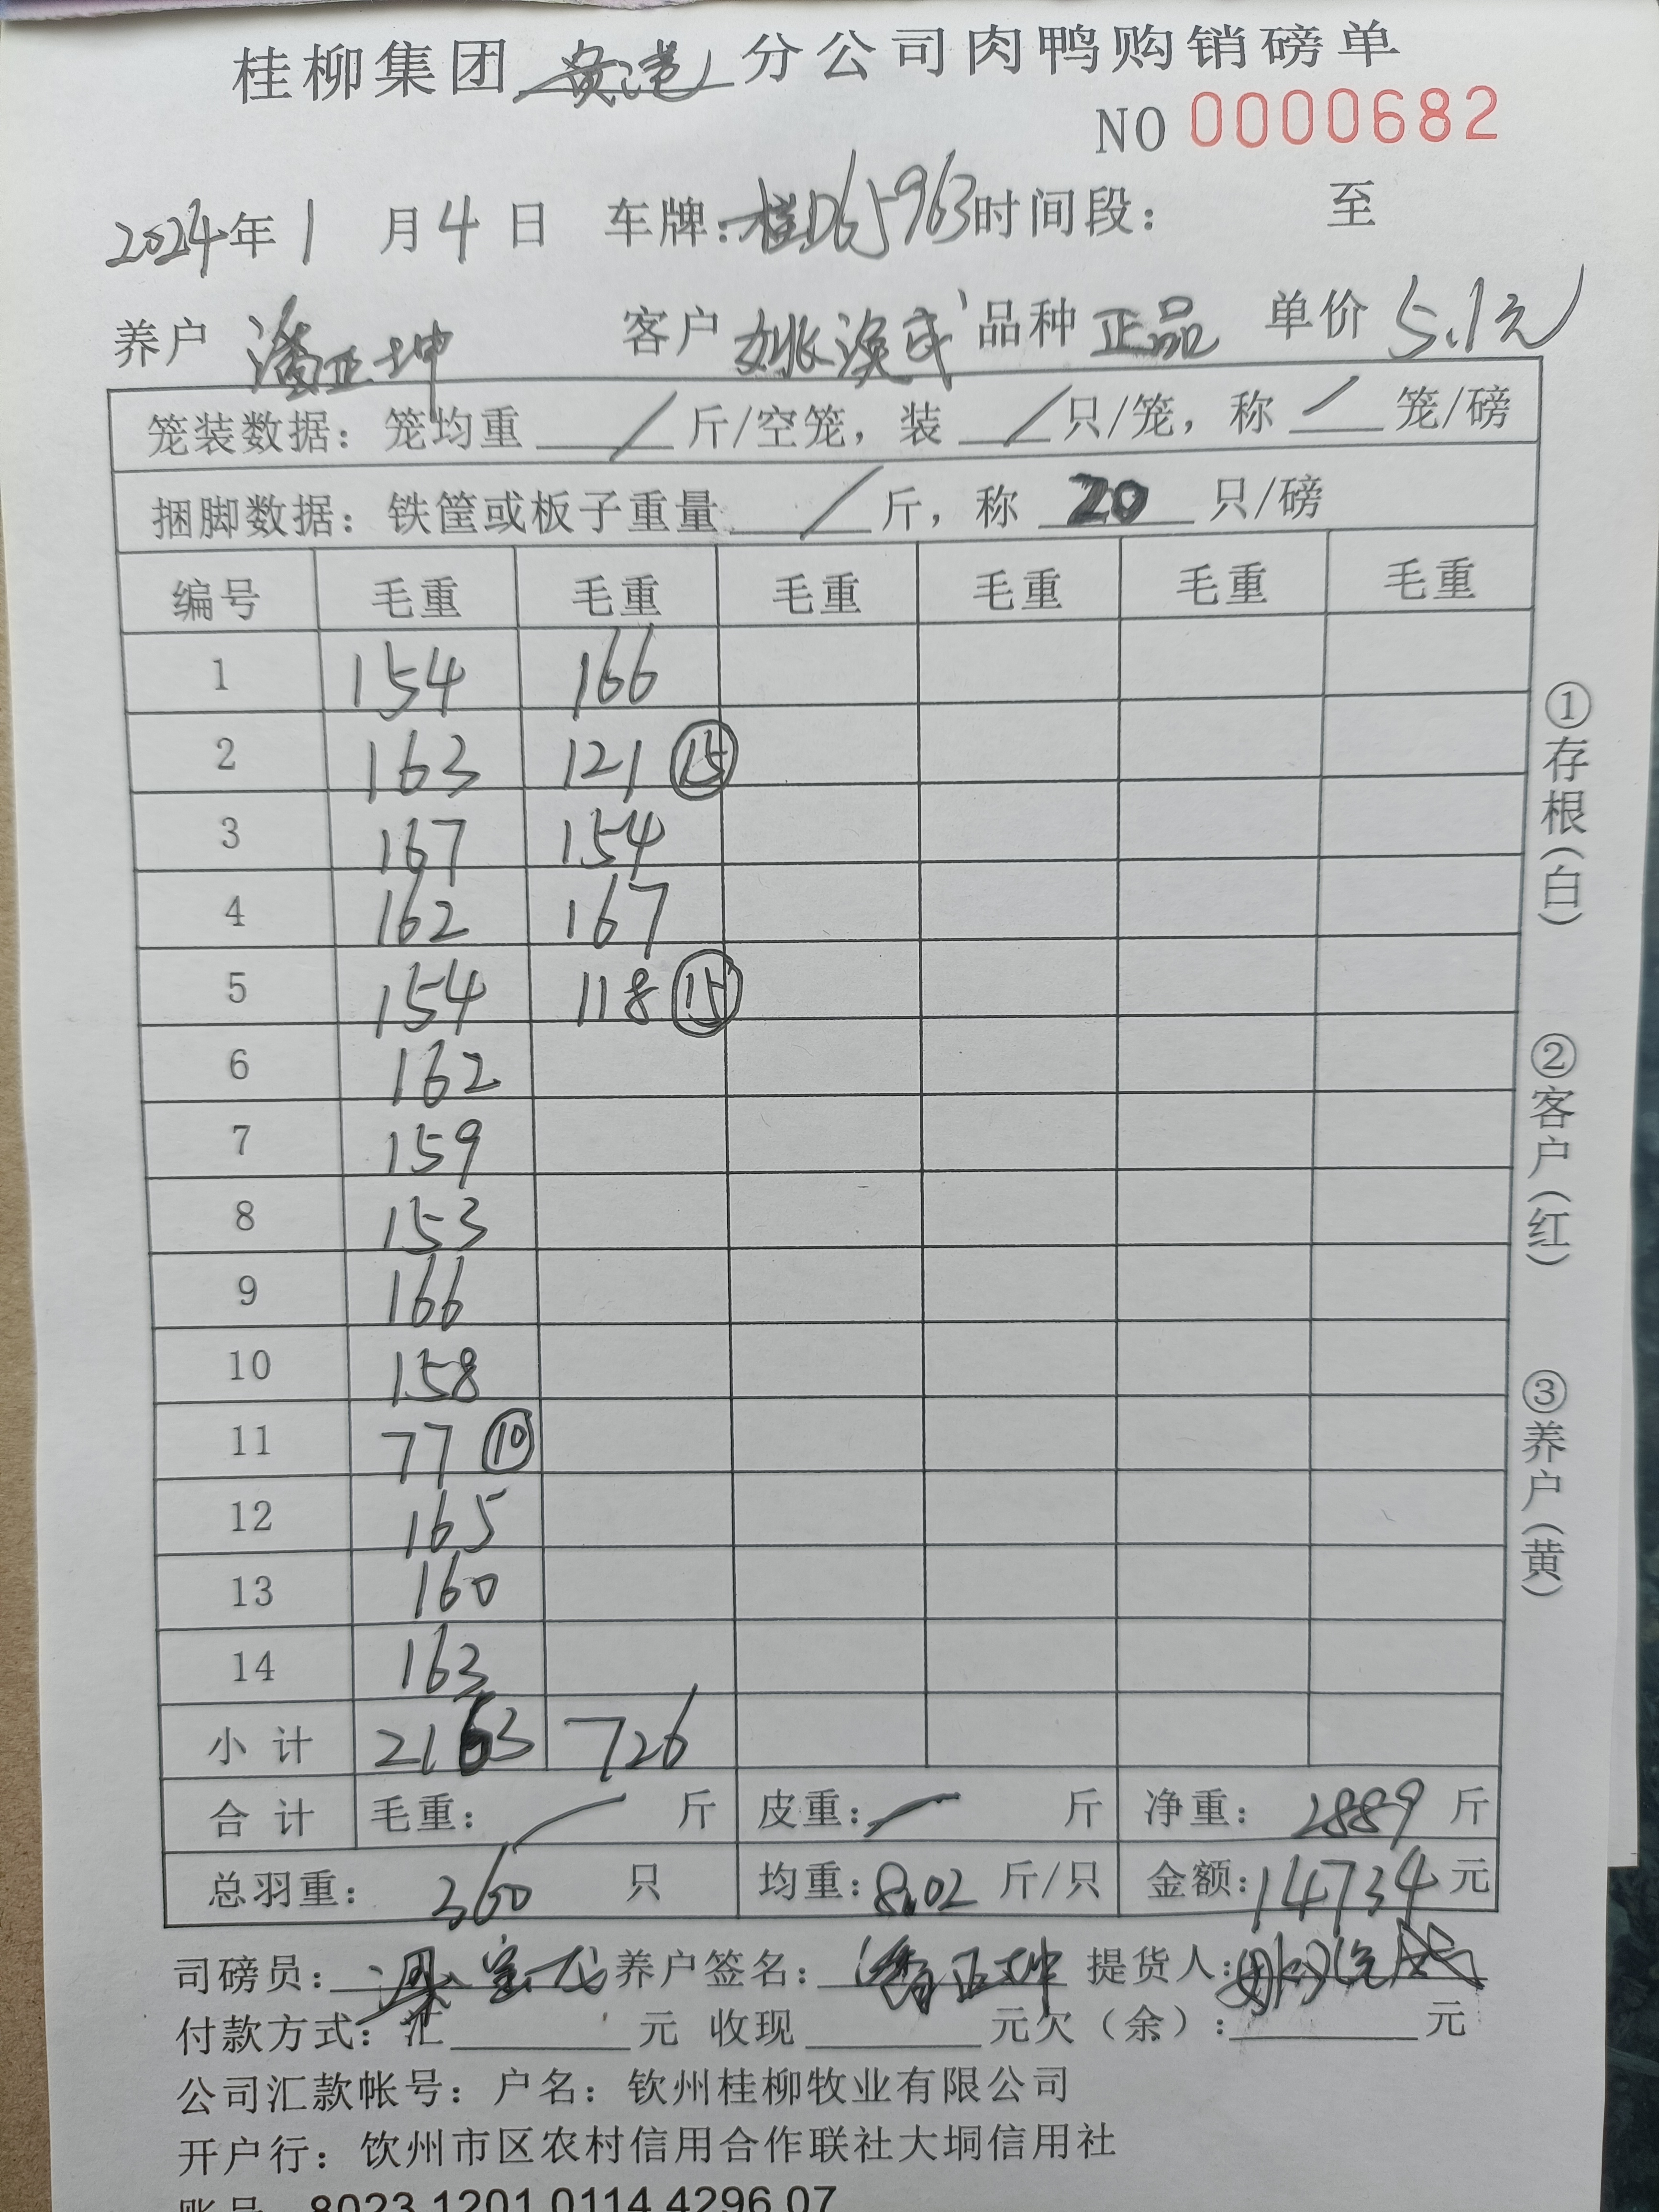 桂柳集团 贵港 分公司肉鸭购销磅单
NO 0000682
2024年1月4日 车牌:桂D65963 时间段: 至
养户 潘正坤 客户 姚焕成 品种 正品 单价 5.1元
笼装数据: 笼均重 / 斤/空笼, 装 / 只/笼, 称 / 笼/磅
捆脚数据: 铁筐或板子重量 / 斤, 称 20 只/磅
编号 毛重 毛重 毛重 毛重 毛重 毛重
1 154 166
2 163 121 ⑮
3 167 154
4 162 167
5 154 118 ⑮
6 162
7 159
8 153
9 166
10 158
11 77 ⑩
12 165
13 160
14 163
小计 2163 726
合计 毛重: / 斤 皮重: / 斤 净重: 2889 斤
总羽重: 360 只 均重: 8.02 斤/只 金额: 14734 元
司磅员: 养户签名: 潘正坤 提货人:
付款方式: 汇 元 收现 元欠(余): 元
公司汇款帐号: 户名: 钦州桂柳牧业有限公司
开户行: 钦州市区农村信用合作联社大垌信用社
账号 8023 1201 0114 4296 07
①存根(白)
②客户(红)
③养户(黄)